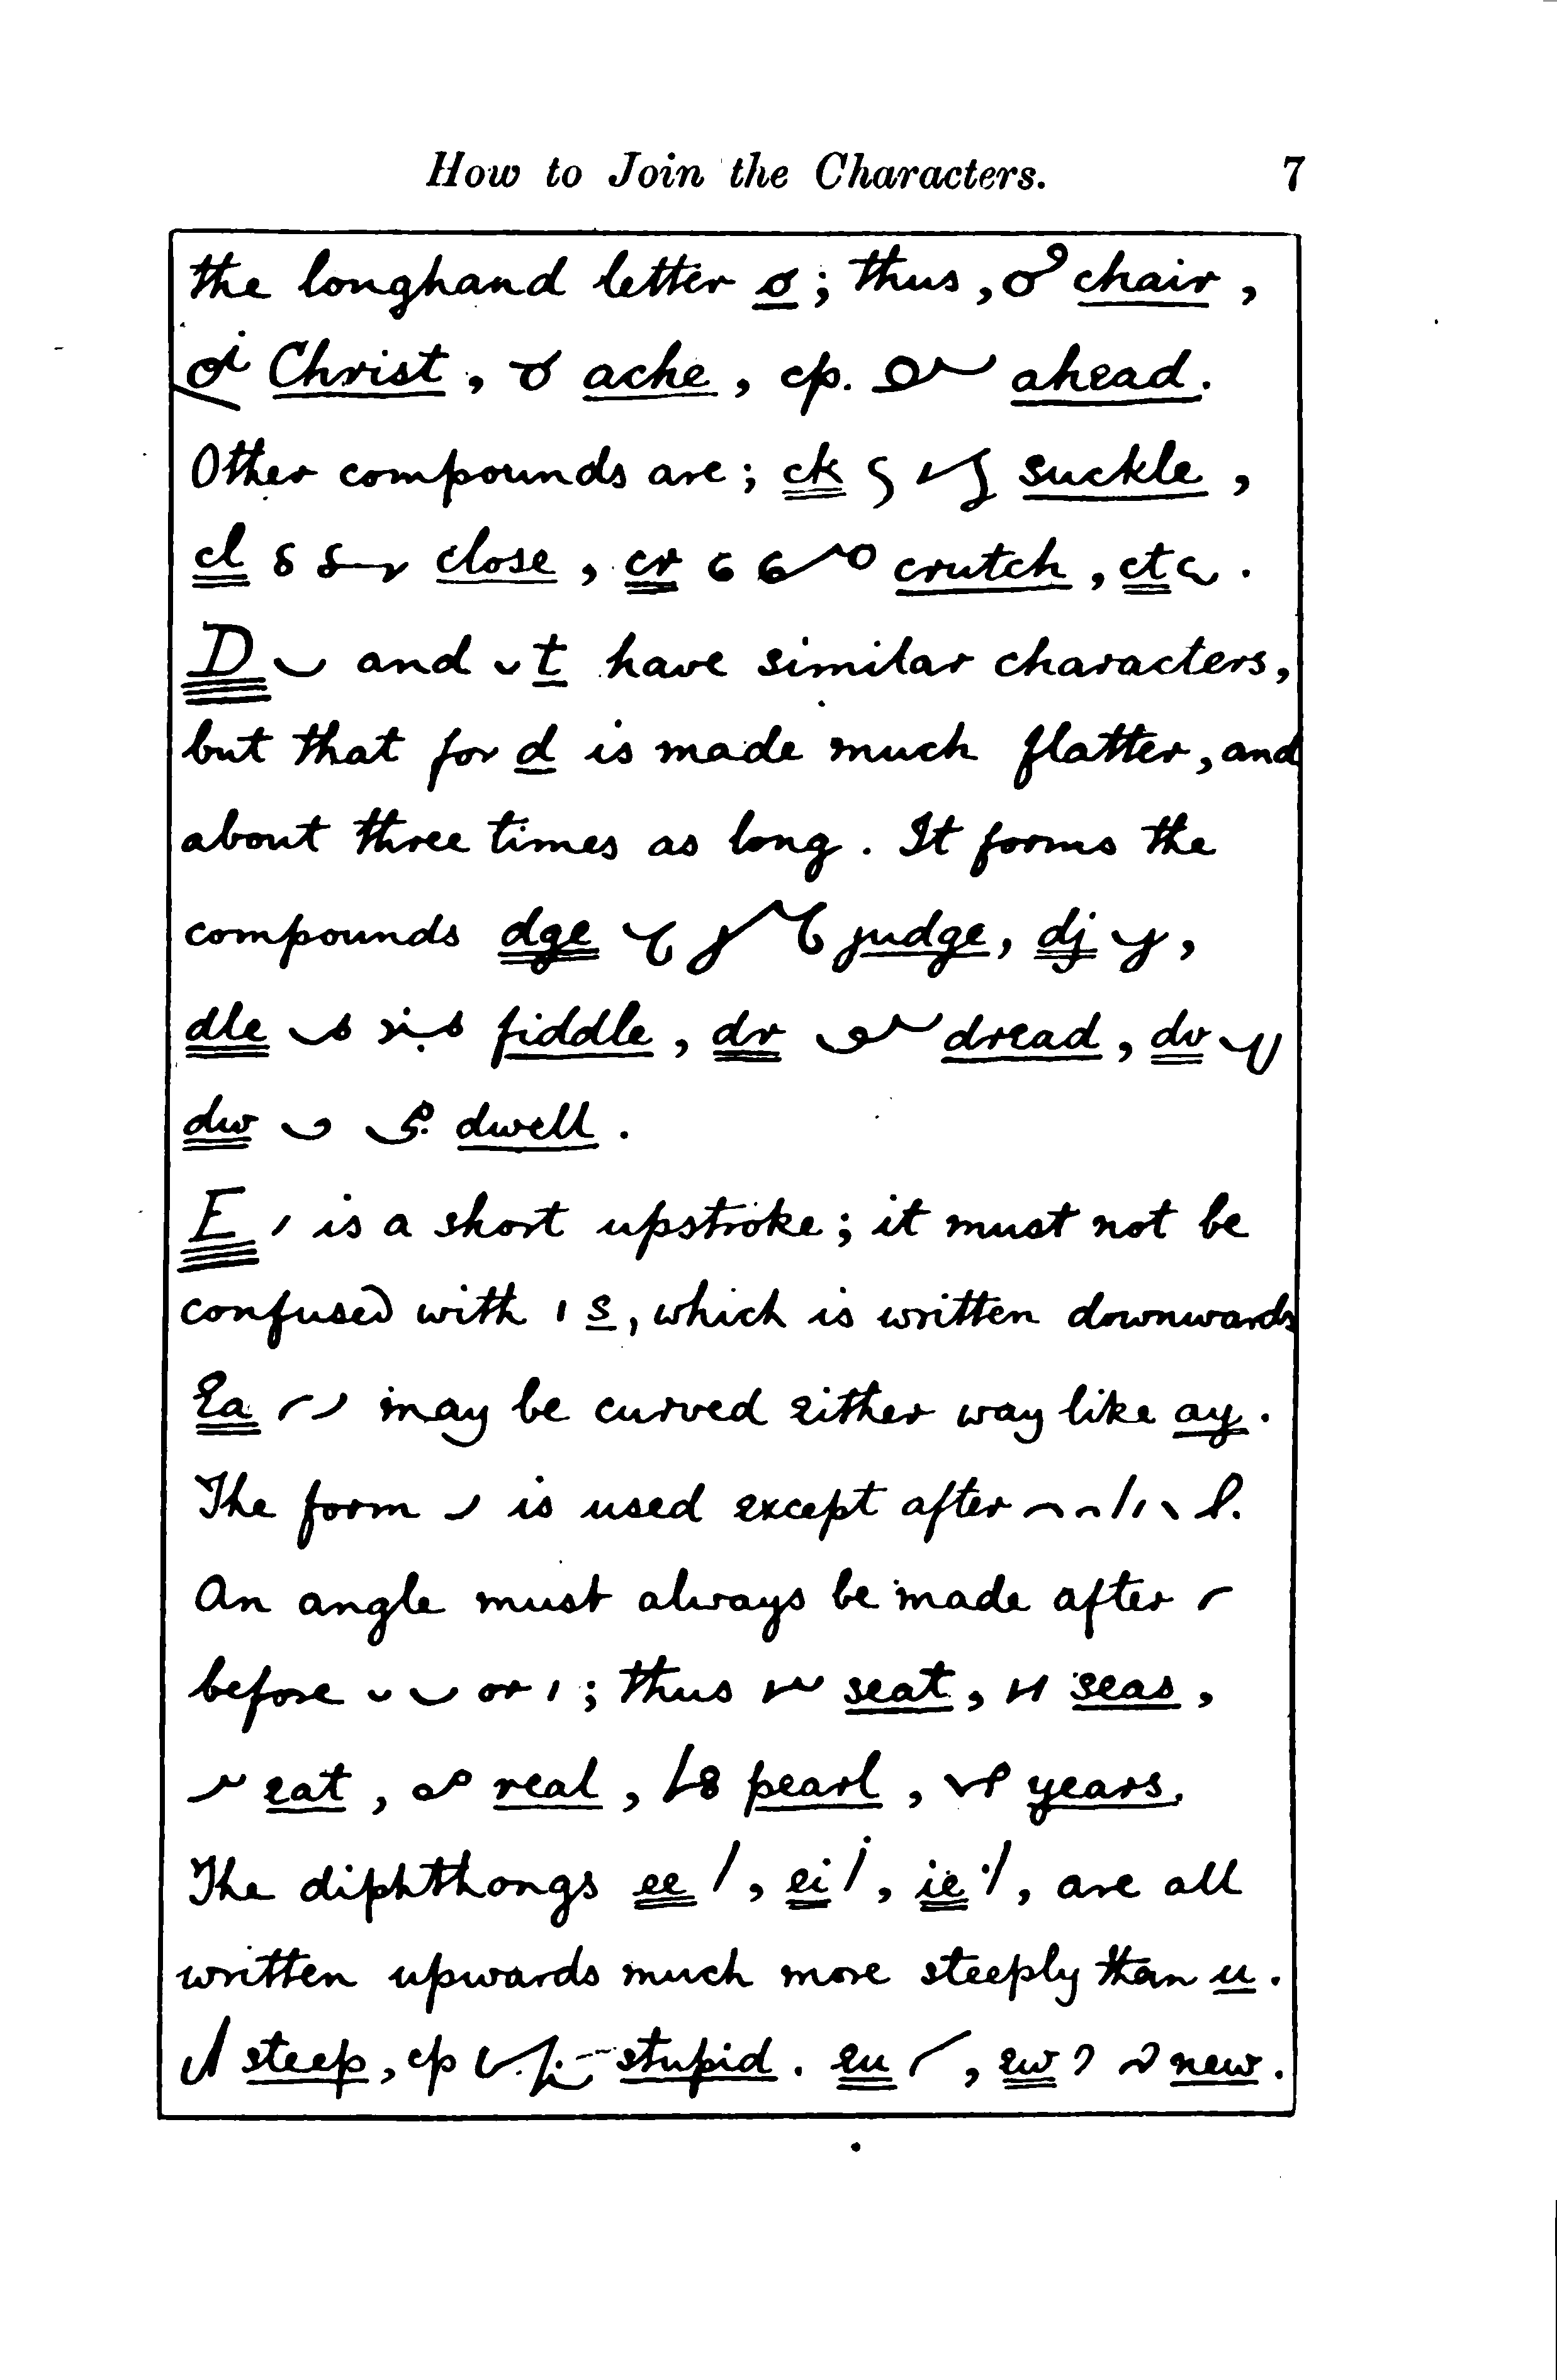 How to Join the Characters. 7
the longhand letter o; thus, chair,
Christ, ache, cp. ahead.
Other compounds are; ck suckle,
cl close, cr crutch, ct.
D and t have similar characters,
but that for d is made much flatter, and
about three times as long. It forms the
compounds dge judge, dj,
dle fiddle, dr dread, dv
dw dwell.
E is a short upstroke; it must not be
confused with s, which is written downwards
Ea may be curved either way like ay.
The form is used except after
An angle must always be made after
before or; thus seat, seas,
eat, real, pearl, years.
The diphthongs ee, ei, ie, are all
written upwards much more steeply than u.
steep, cp stupid. eu, ew new.